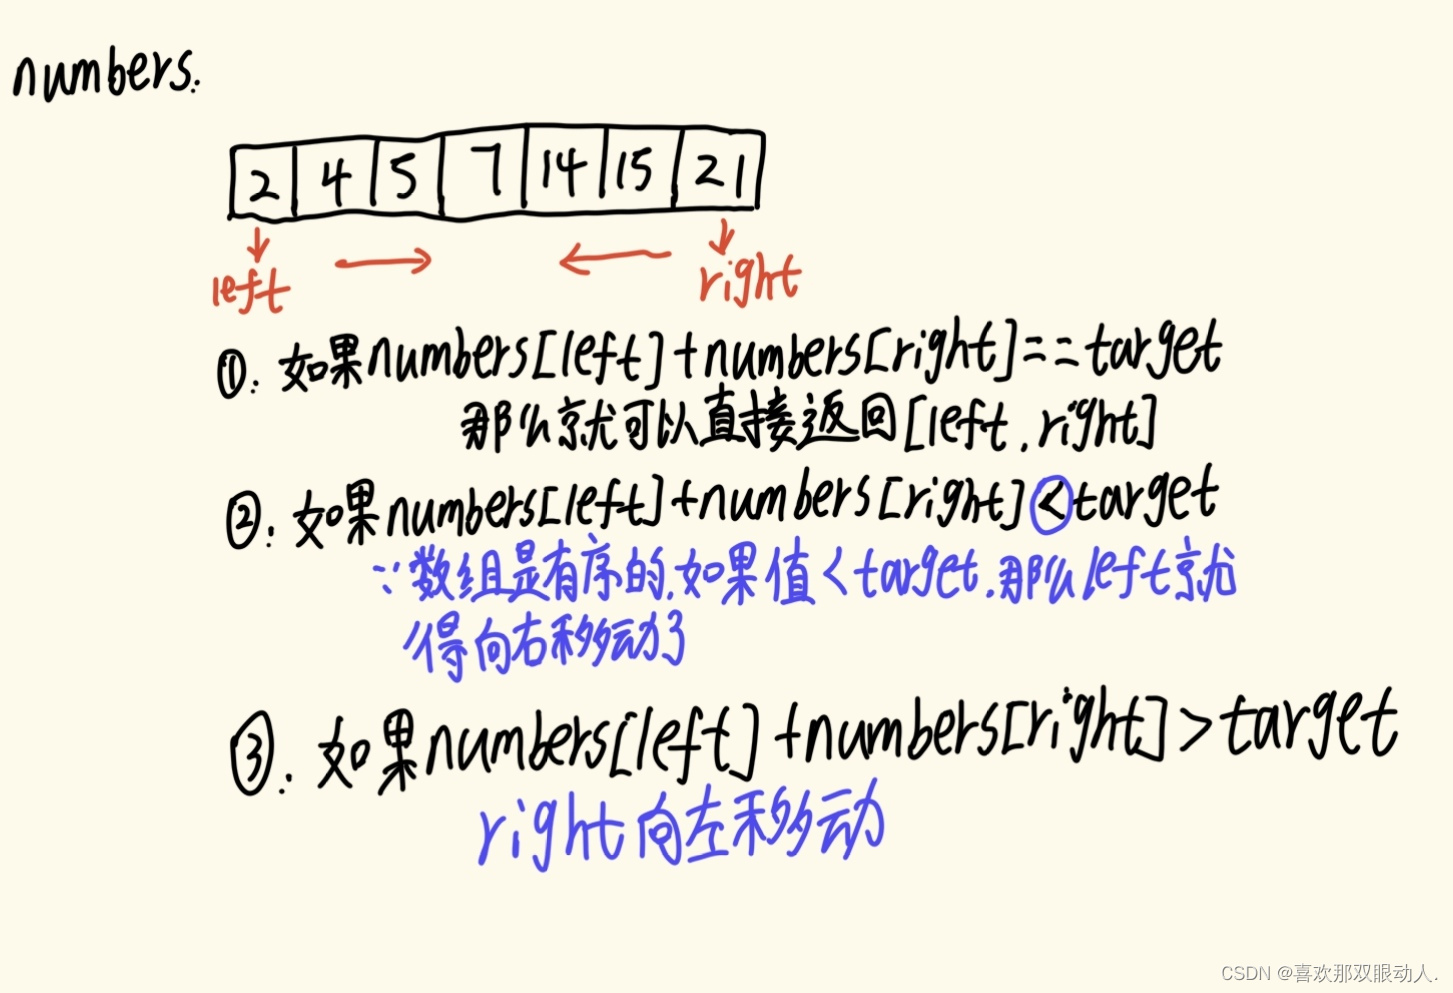 numbers:
2 4 5 7 14 15 21
left right
①. 如果numbers[left]+numbers[right]==target
那么就可以直接返回[left,right]
②. 如果numbers[left]+numbers[right]<target
∵数组是有序的,如果值<target.那么left就
得向右移动了
③. 如果numbers[left]+numbers[right]>target
right向左移动
CSDN @喜欢那双眼动人.